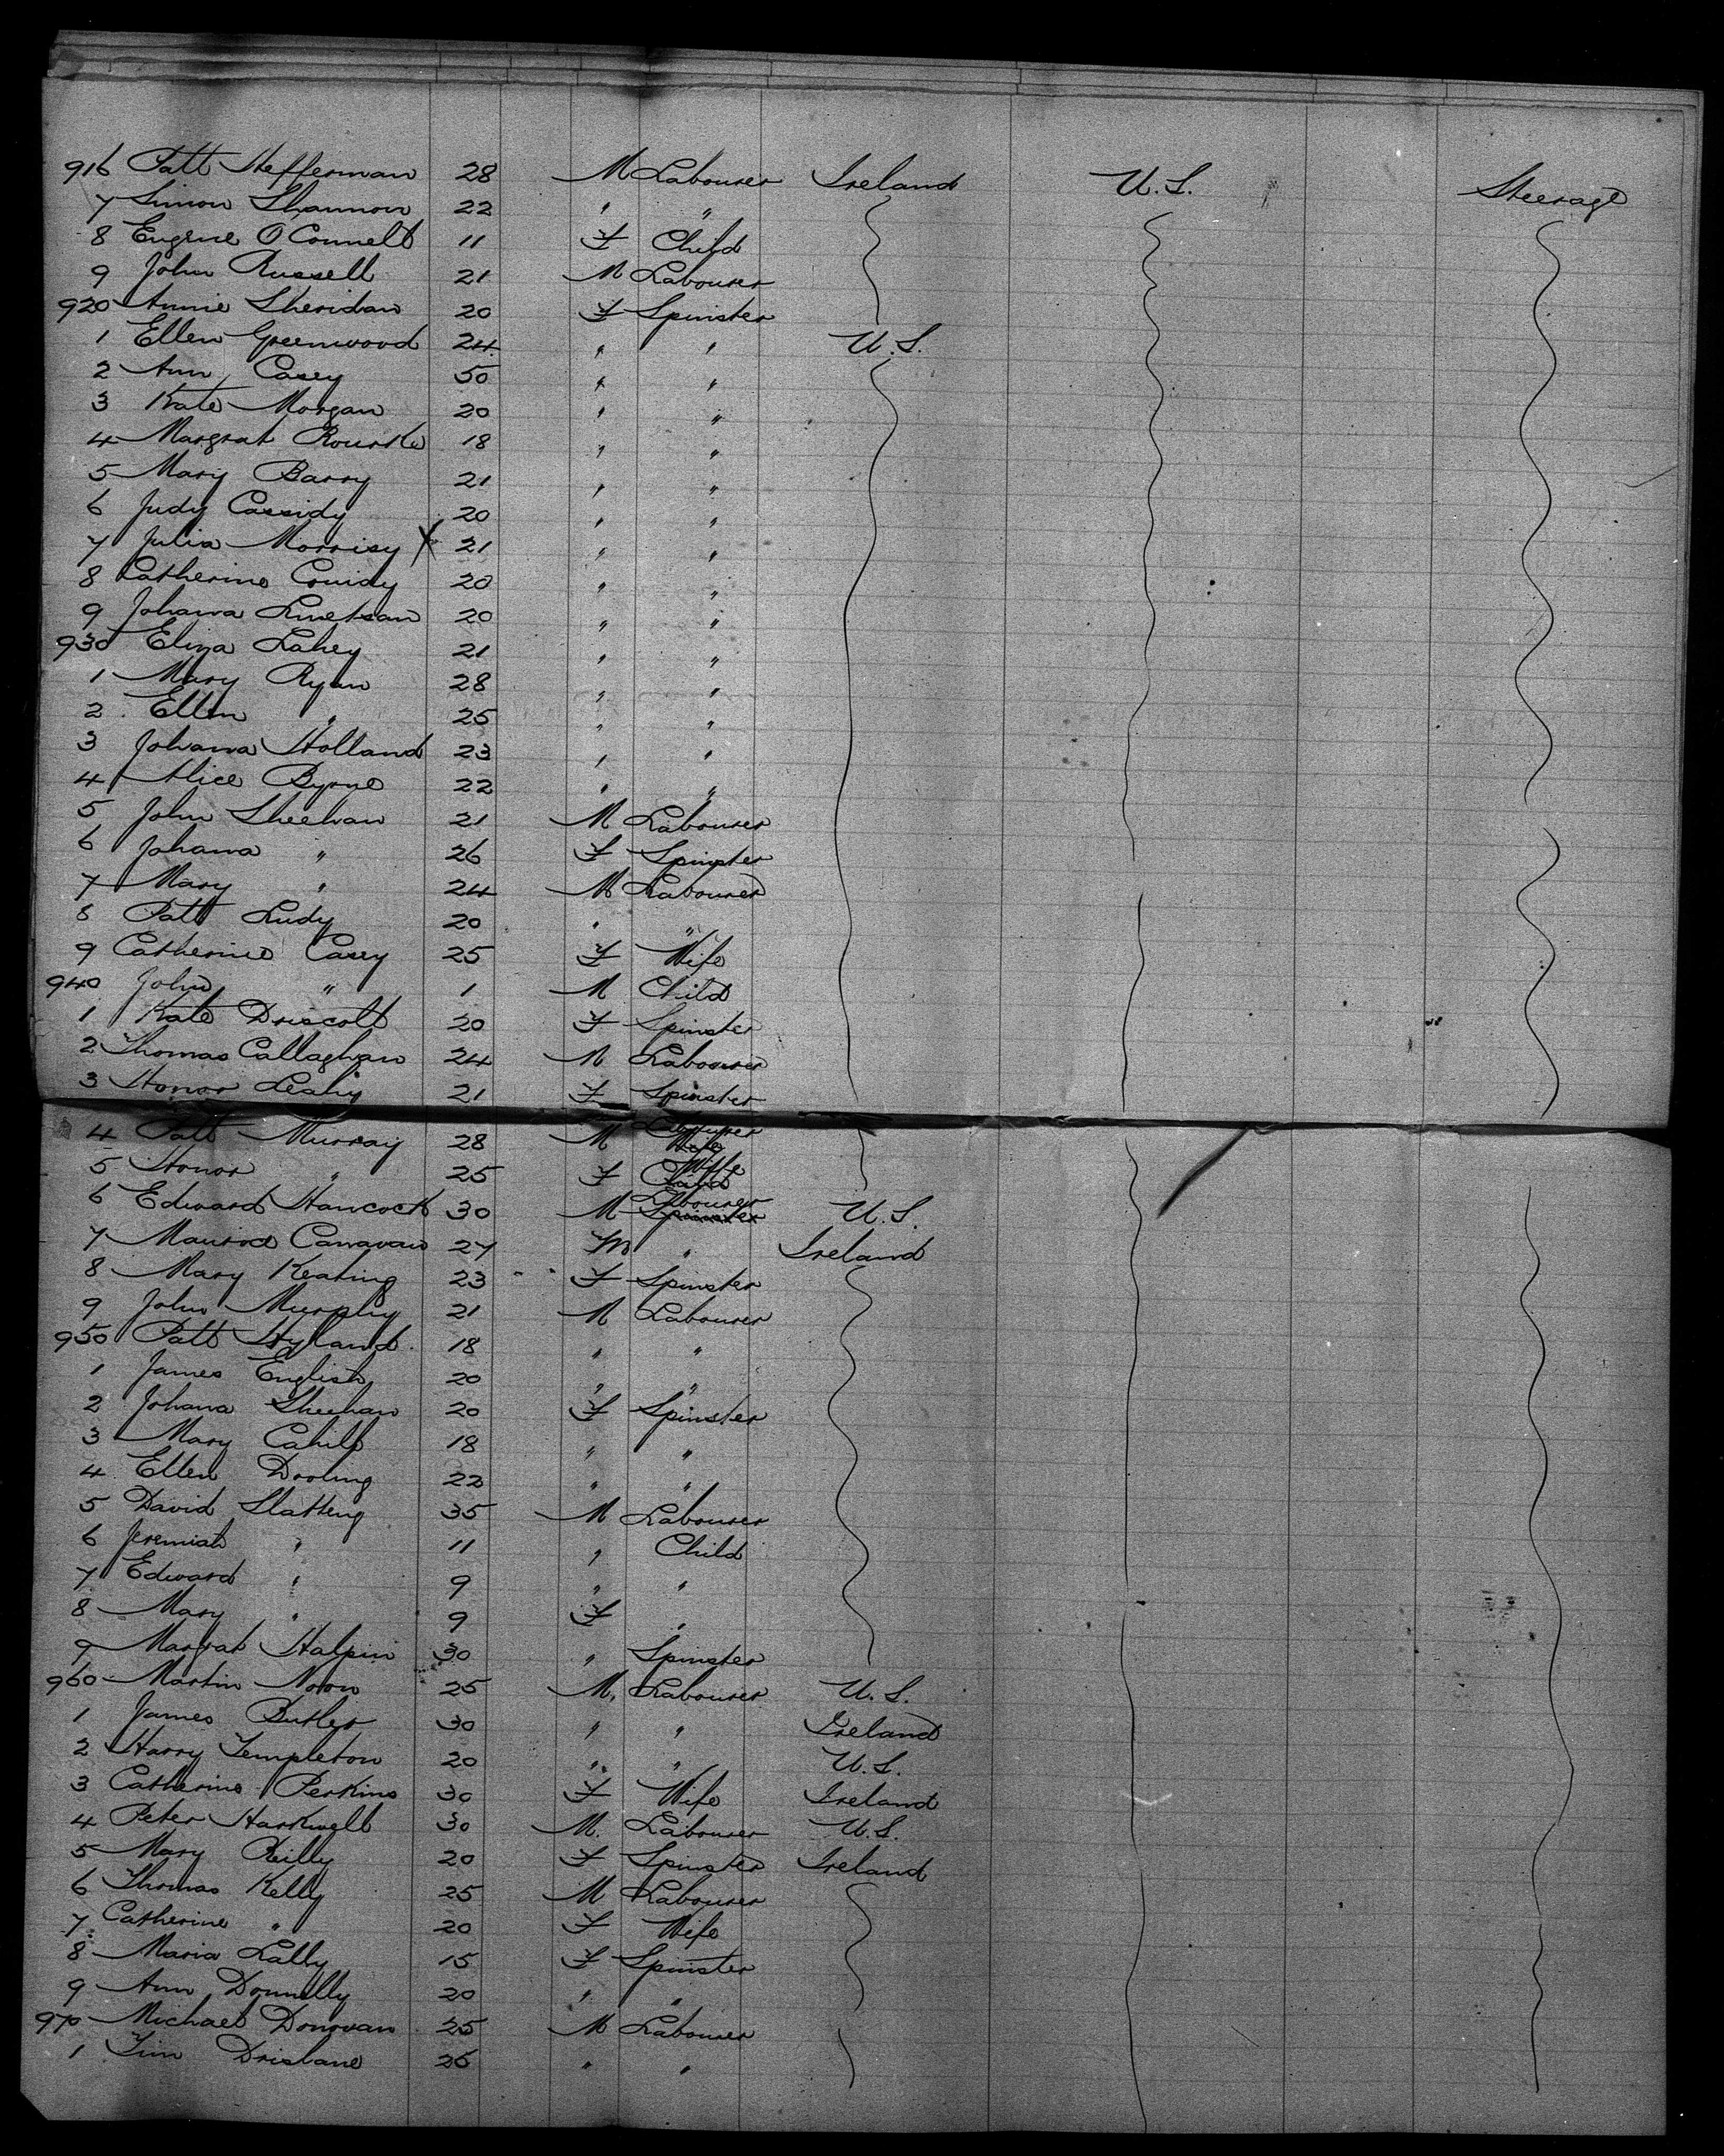 916 Patt Heffernan 28 M Labourer Ireland U.S. Steerage
7 Simon Shannon 22 " "
8 Eugene O'Connell 11 F Child
9 John Russell 21 M Labourer
920 Annie Sheridan 20 F Spinster
1 Ellen Greenwood 24 " " U.S.
2 Ann Casey 50 " "
3 Kate Morgan 20 " "
4 Margrat Rourke 18 " "
5 Mary Barry 21 " "
6 Judy Cassidy 20 " "
7 Julia Morrisy X 21 " "
8 Catherine 20 " "
9 Johanna 20 " "
930 Eliza Lahey 21 " "
1 Mary Ryan 28 " "
2 Ellen " 25 " "
3 Johanna Holland 23 " "
4 Alice Byrne 22 " "
5 John Sheehan 21 M Labourer
6 Johana " 26 F Spinster
7 Mary " 24 M Labourer
8 Patt Ludy 20 " "
9 Catherine Casey 25 F Wife
940 John " 1 M Child
1 Kate Driscoll 20 F Spinster
2 Thomas Callaghan 24 M Labourer
3 Honor Leahy 21 F Spinster
4 Patt Murray 28 M Labourer
5 Honor " 25 F Wife
6 Edward Hancock 30 M Labourer U.S.
7 Maurice Canavan 27 M " Ireland
8 Mary Keating 23 F Spinster
9 John Murphy 21 M Labourer
950 Patt Hyland 18 " "
1 James English 20 " "
2 Johana Sheehan 20 F Spinster
3 Mary Cahill 18 " "
4 Ellen Dooling 22 " "
5 David Slattery 35 M Labourer
6 Jeremiah " 11 " Child
7 Edward " 9 " "
8 Mary " 9 F "
9 Margrat Halpin 30 " Spinster
960 Martin Noon 25 M. Labourer U.S.
1 James Butler 30 " " Ireland
2 Harry Templeton 20 " " U.S.
3 Catherine Perkins 30 F Wife Ireland
4 Peter Harkwell 30 M. Labourer U.S.
5 Mary Reilly 20 F Spinster Ireland
6 Thomas Kelly 25 M Labourer
7 Catherine " 20 F Wife
8 Maria Lally 15 F Spinster
9 Ann Donnelly 20 " "
970 Michael Donovan 25 M Labourer
1 Tim Drislane 25 " "